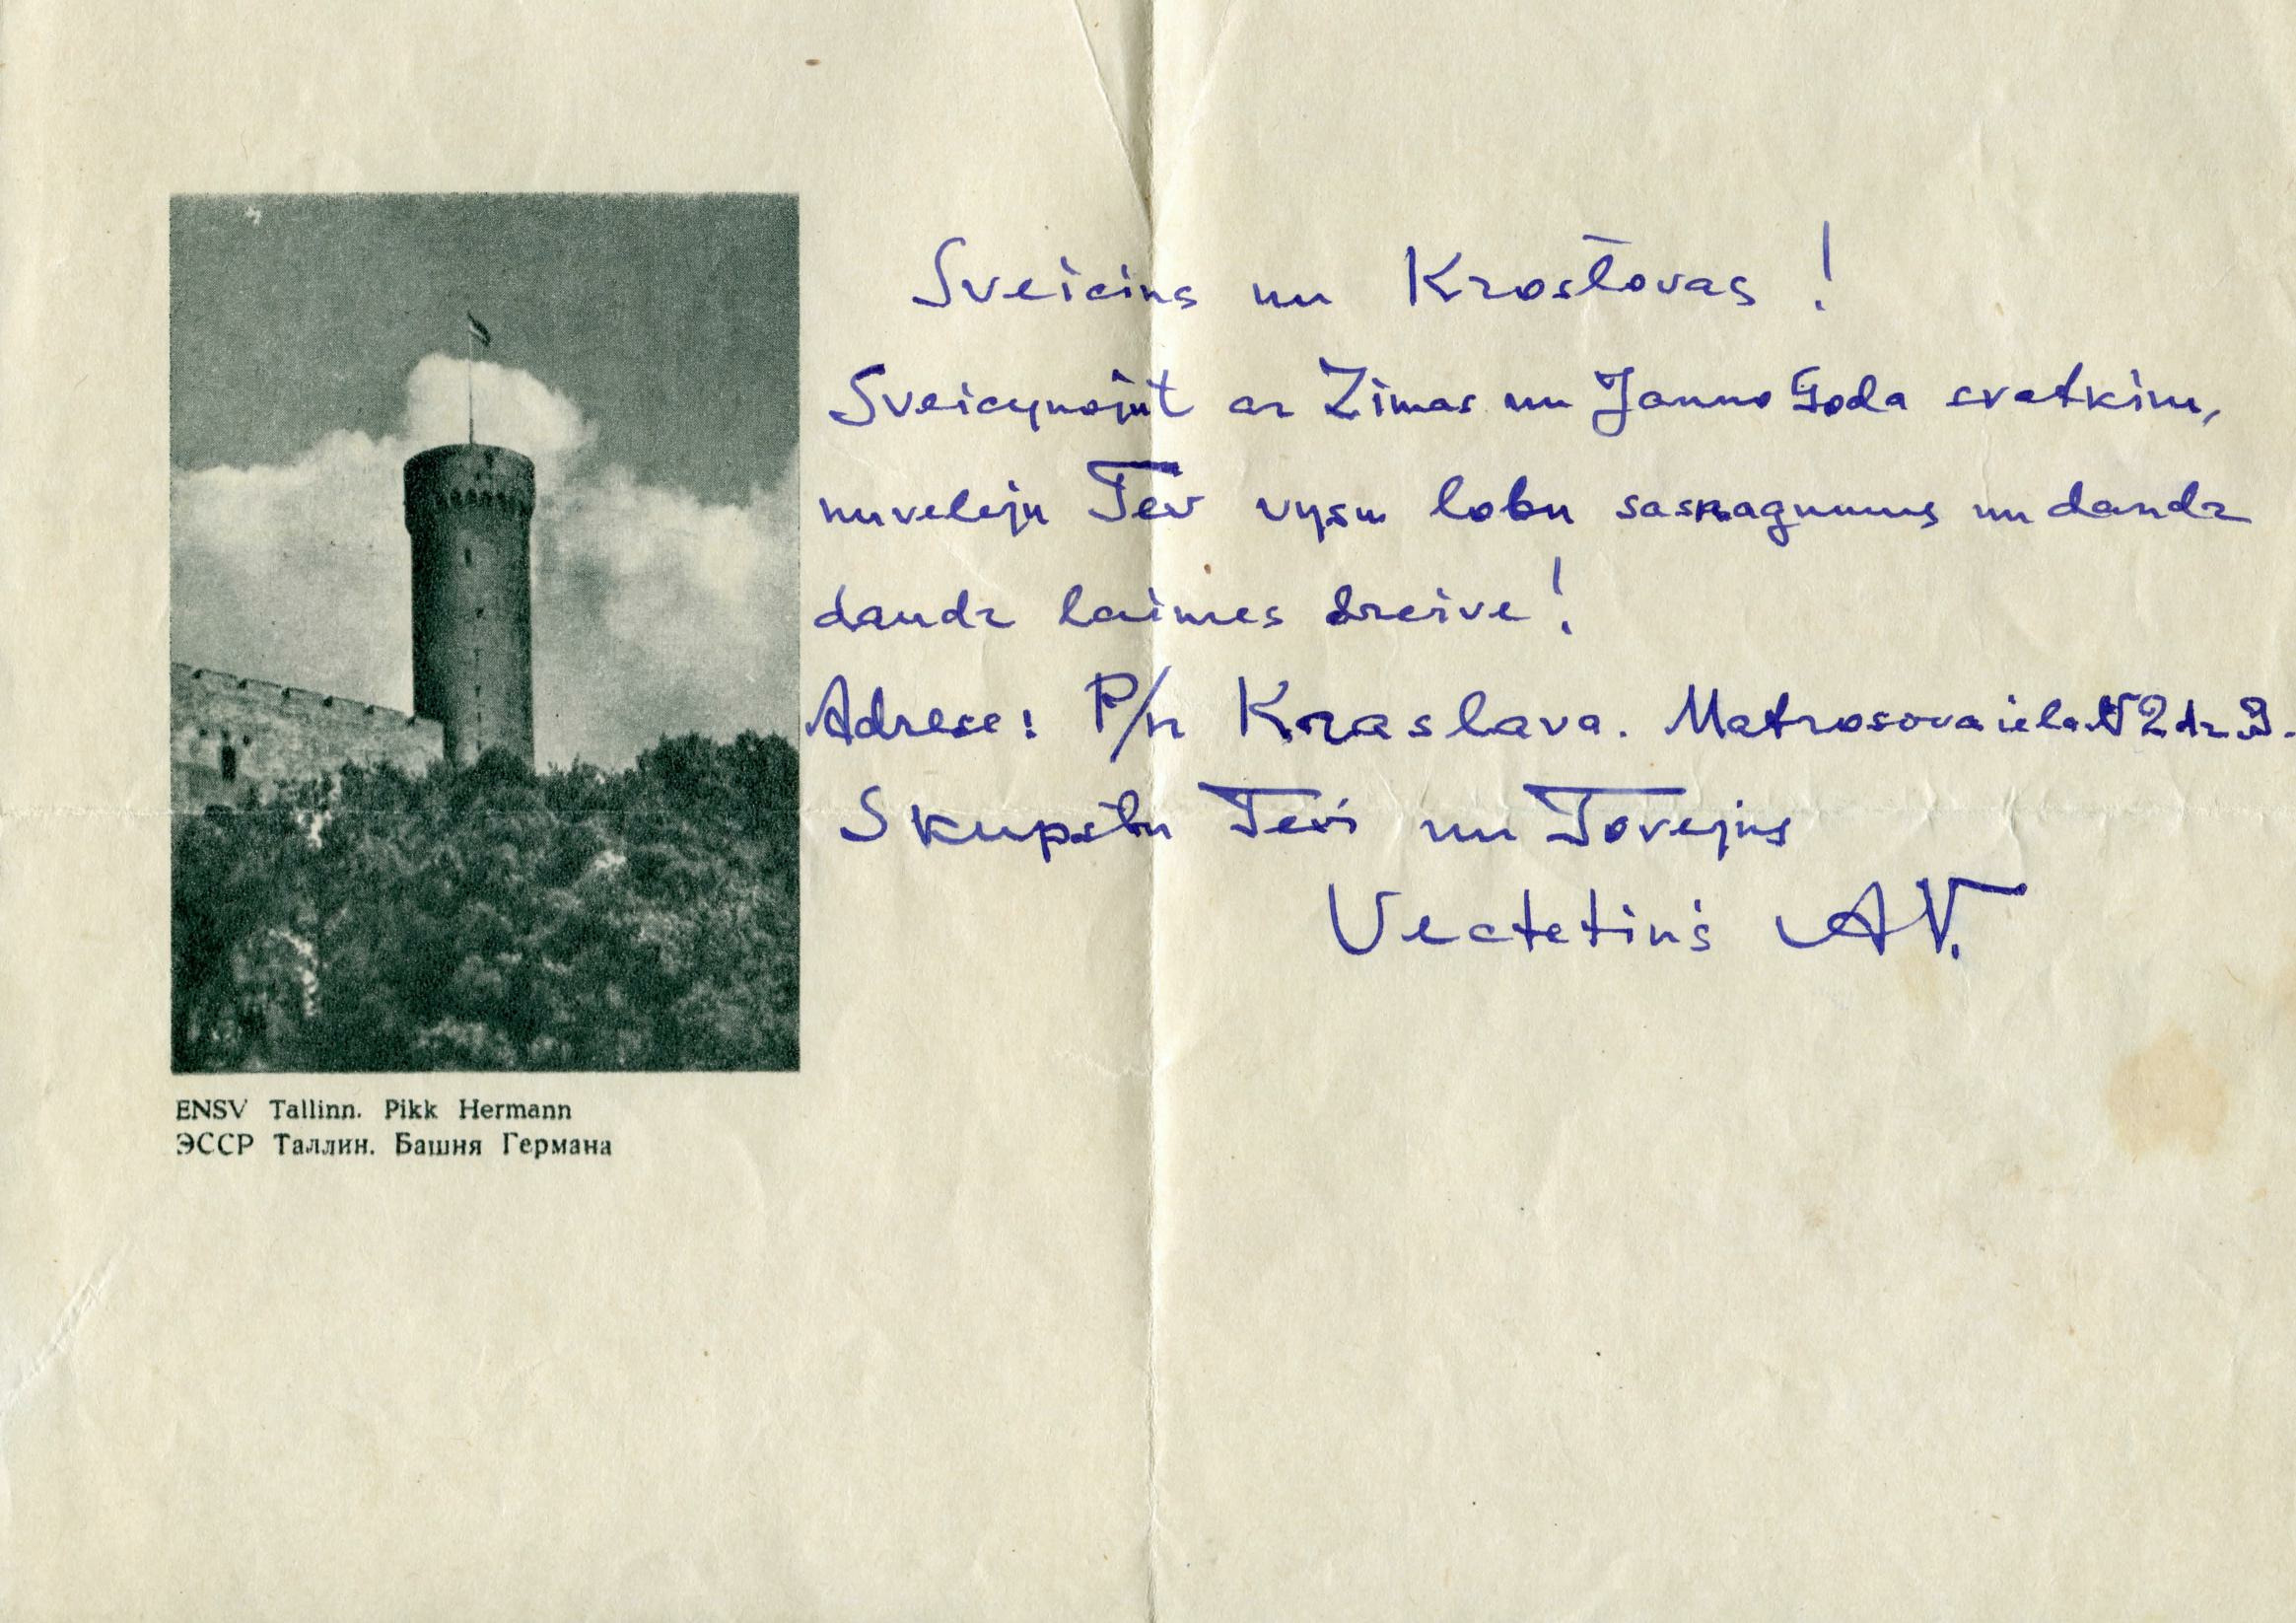 Sveicins nu Kroslovas!
Sveicynojut ar Zimas un Jauno Goda svatkim,
nuveleju Tev vysu lobu sasnagumus un daudz
daudz laimes dzeive!
Adrese: P/n Kraslava. Matrosova iela N2 dz 3.
Skupstu Tevi un Tovejus
Vectetiņš AV.
ENSV Tallinn. Pikk Hermann
ЭССР Таллин. Башня Германа